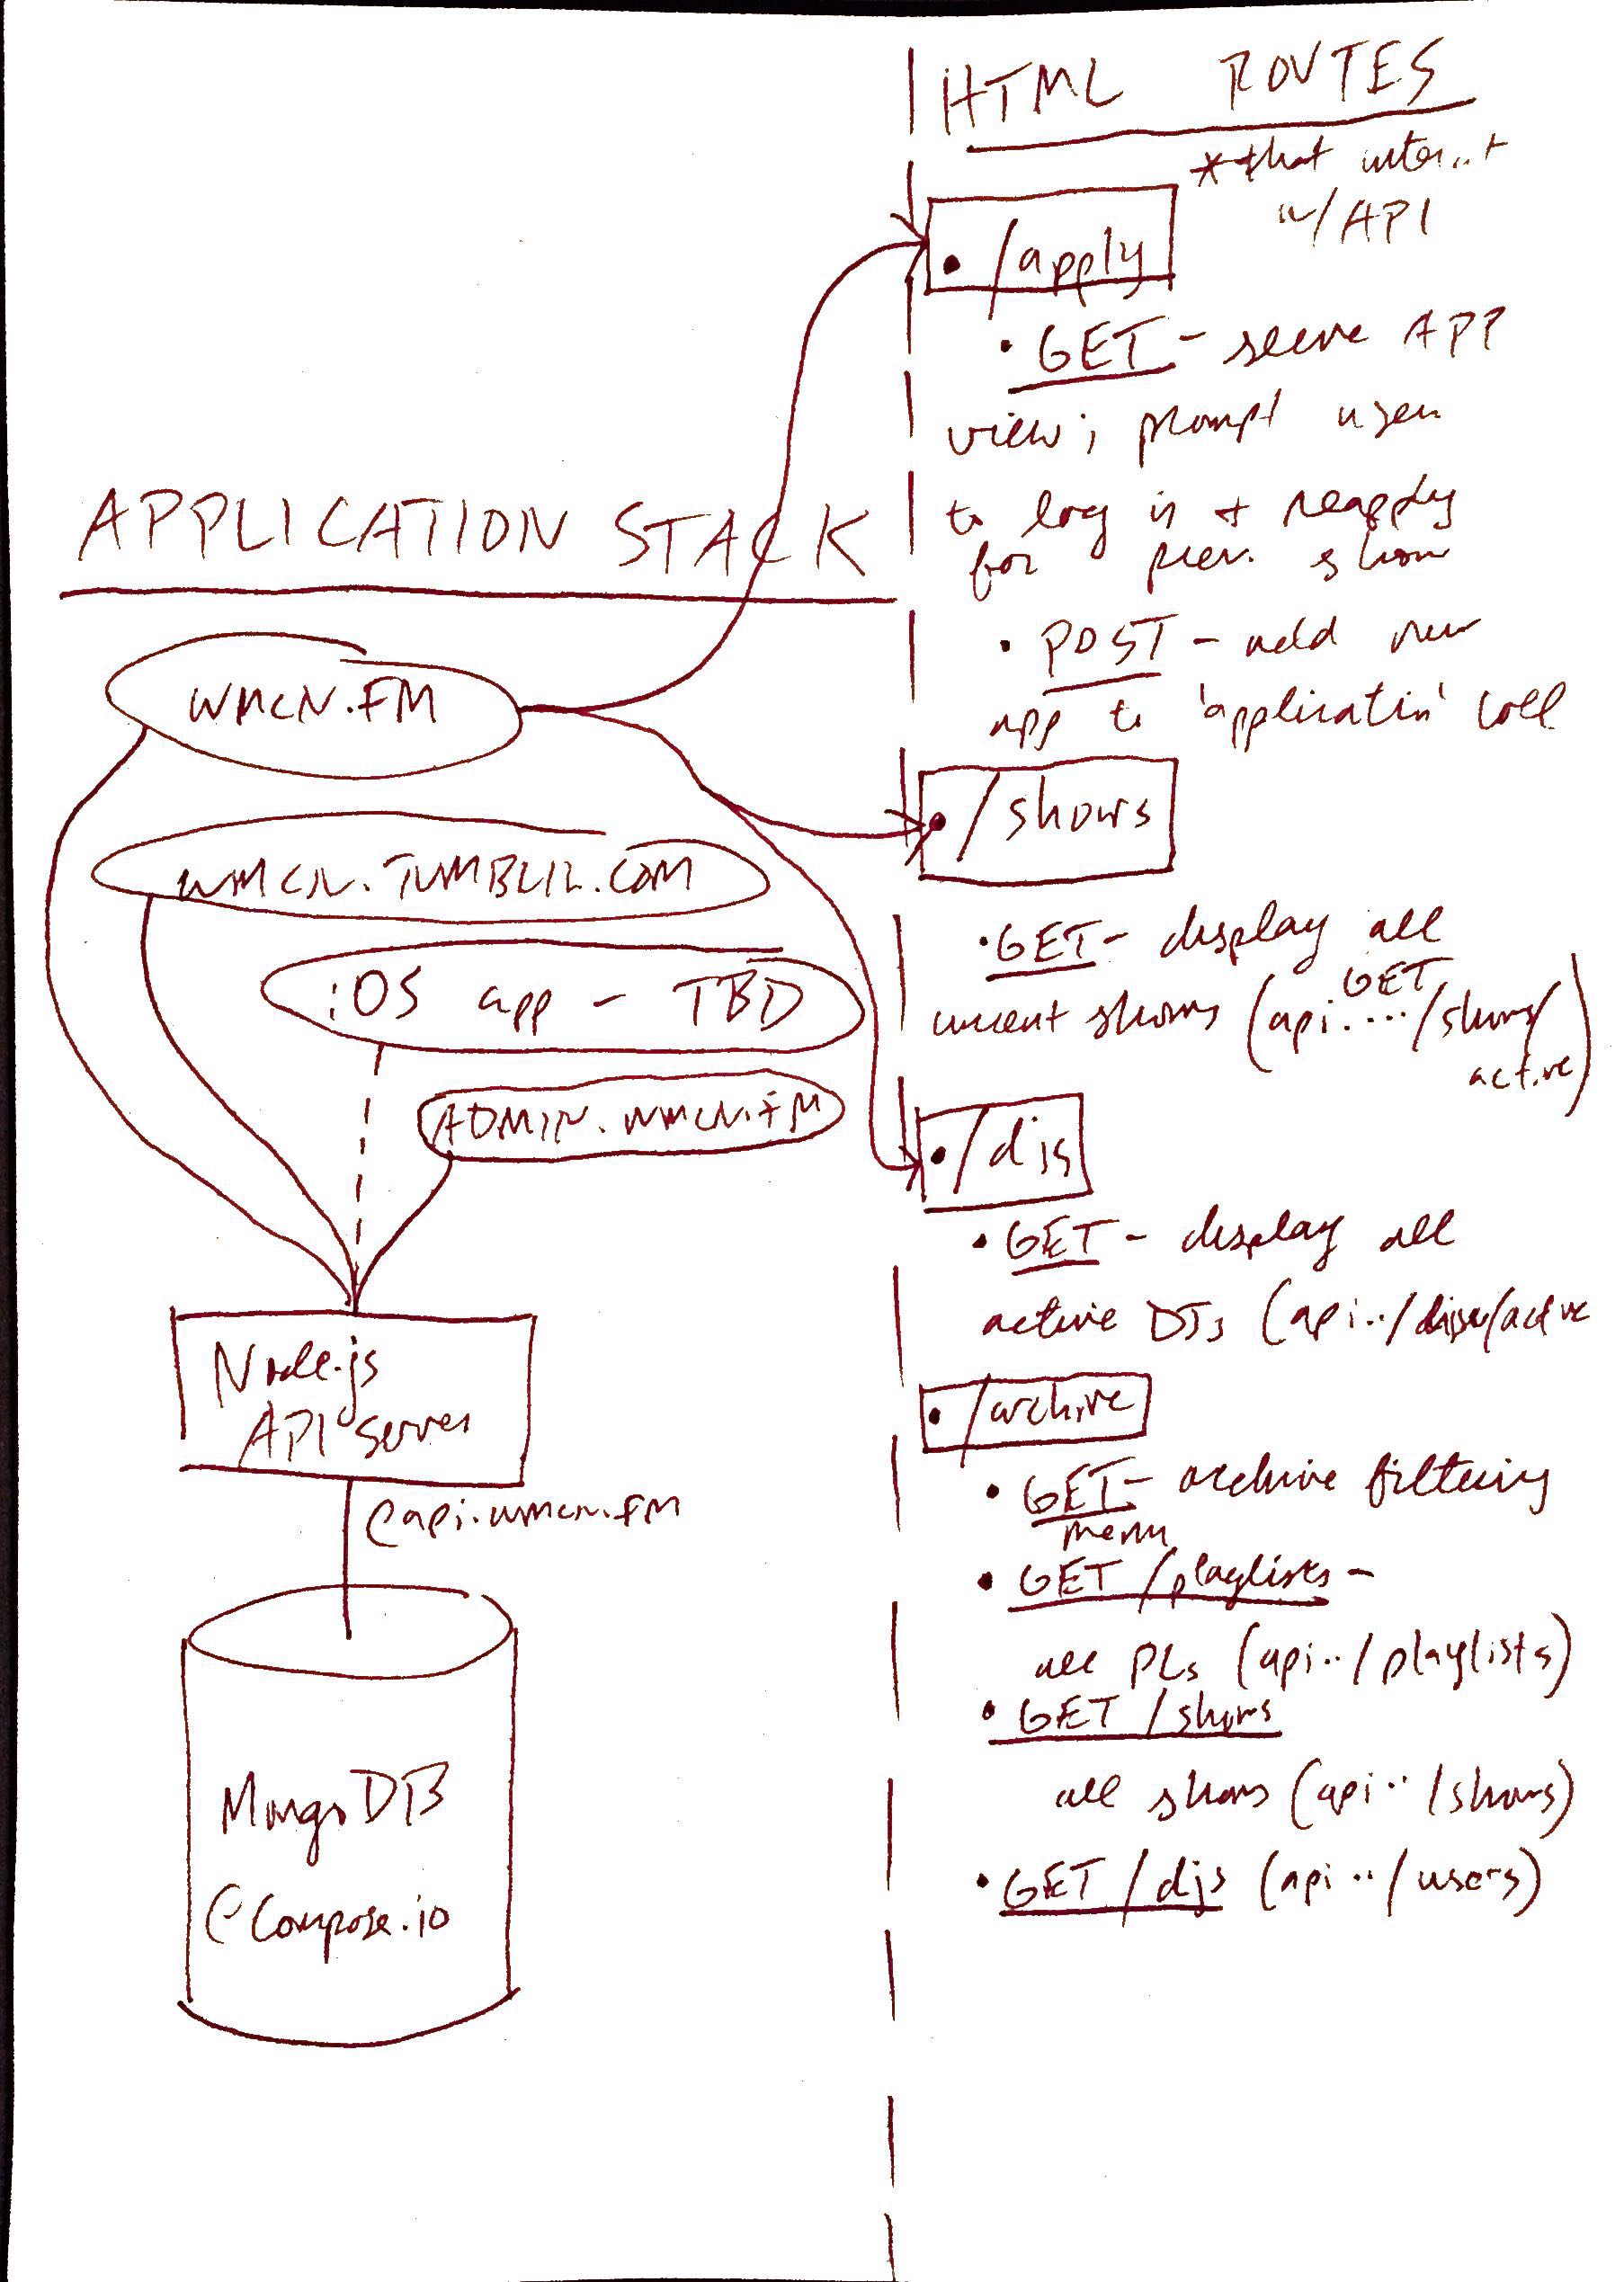 APPLICATION STACK
WMCN.FM
WMCN.TUMBLR.COM
iOS app - TBD
ADMIN.WMCN.FM
Node.js
API server
@api.wmcn.fm
MongoDB
@Compose.io
HTML ROUTES
*that
w/API
• /apply
• GET - serve APP
view; prompt user
to log in + reapply
for prev. show
• POST - add new
app to 'application' coll
• /shows
• GET - display all
current shows (api..../shows/
GET
active)
• /djs
• GET - display all
active DJs (api../ /active
• /archive
• GET - archive filtering
menu
• GET /playlists -
all PLs (api../playlists)
• GET /shows
all shows (api../shows)
• GET /djs (api../users)